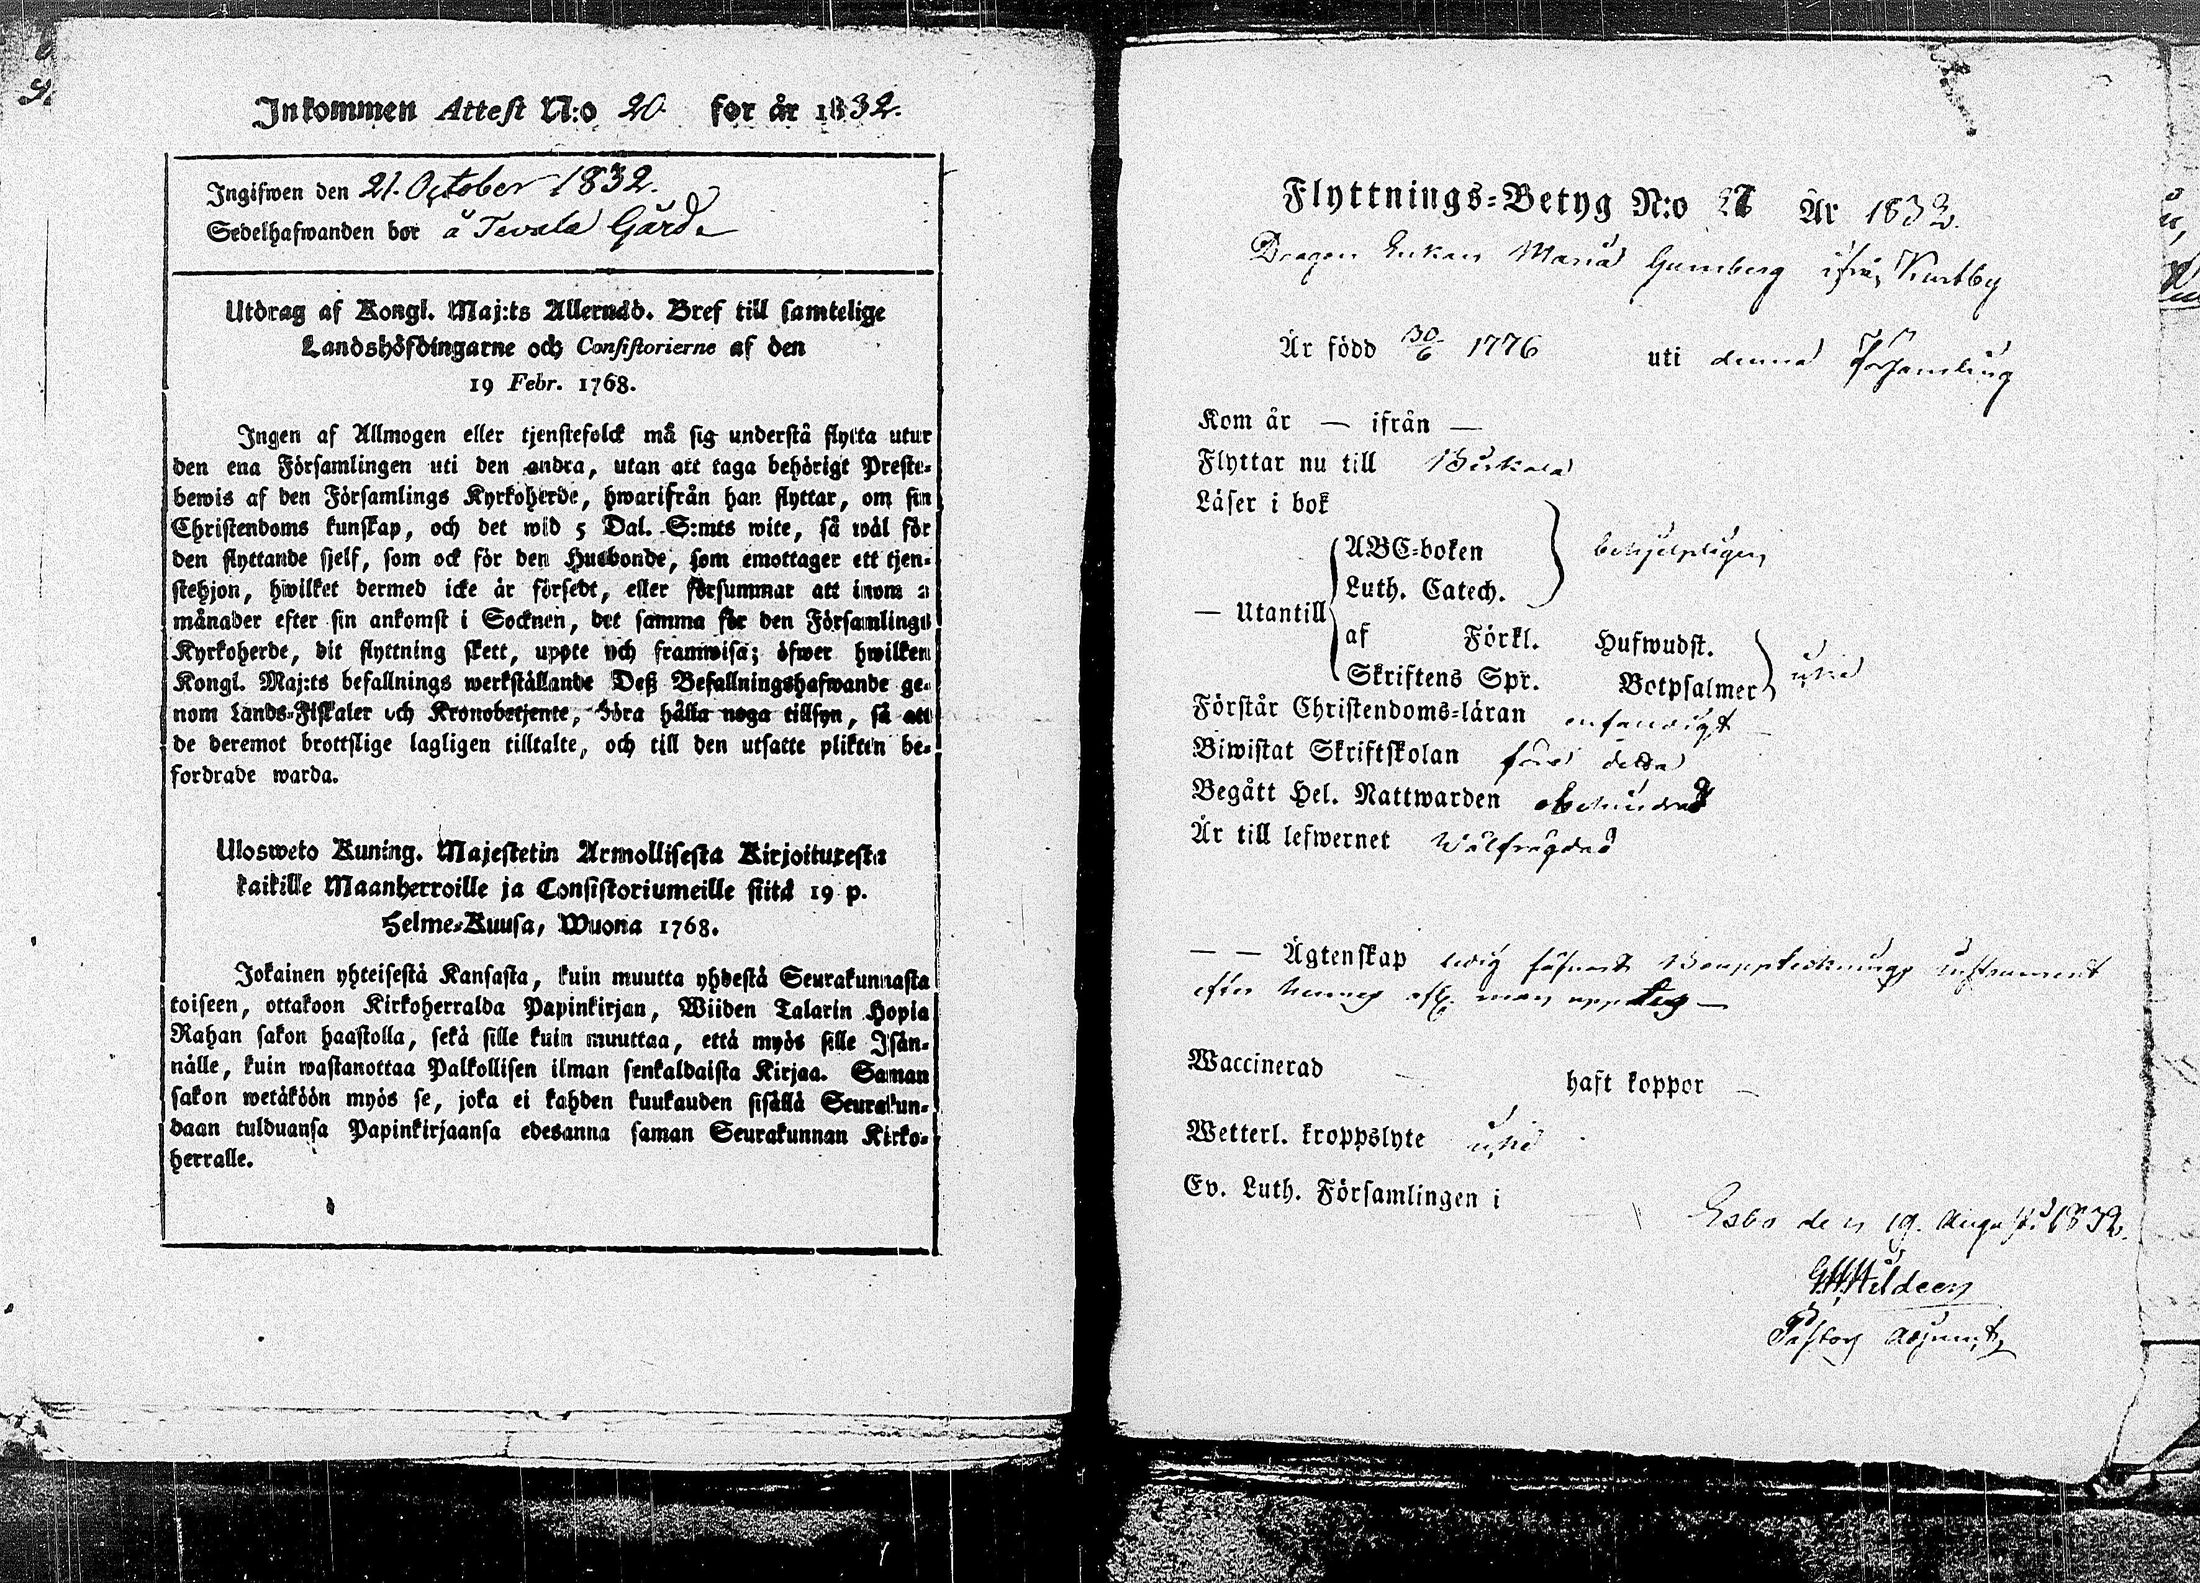 Inkommen Attest N:o 20. for år 1832.
Ingifwen den 21. October 1832.
Sedelhafwanden bor å Tevala Gård
Utdrag af Kongl. Maj:ts Allernåd. Bref till samtelige
Landshöfdingarne och Consistorierne af den
19 Febr. 1768.
Ingen af Allmogen eller tjenstefolck må sig understå flytta utur
den ena Församlingen uti den andra, utan att taga behörigt Preste-
bewis af den Församlings Kyrkoherde, hwarifrån han flyttar, om sin
Christendoms kunskap, och det wid 5 Dal. S:mts wite, så wäl för
den flyttande sjelf, som ock för den Husbonde, som emottager ett tjen-
stehjon, hwilket dermed icke är försedt, eller försummar att inom 2
månader efter sin ankomst i Socknen, det samma för den Församlings
Kyrkoherde, dit flyttning skett, uppte och framwisa; öfwer hwilken
Kongl. Maj:ts befallnings werkställande Deß Befallningshafwande ge-
nom Lands-Fiskaler och Kronobetjente, böra hålla noga tillsyn, så att
de deremot brottslige lagligen tilltalte, och till den utsatte plikten be-
fordrade warda.
Ulosweto Kuning. Majestetin Armollisesta Kirjoituxesta
kaikille Maanherroille ja Consistoriumeille siitä 19 p.
Helme-Kuusa, Wuona 1768.
Jokainen yhteisestä Kansasta, kuin muutta yhdestä Seurakunnasta
toiseen, ottakoon Kirkoherralda Papinkirjan, Wiiden Talarin Hopia
Rahan sakon haastolla, sekä sille kuin muuttaa, että myös sille Isän-
nälle, kuin wastanottaa Palkollisen ilman senkaldaista Kirjaa. Saman
sakon wetäköön myös se, joka ei kahden kuukauden sisällä Seurakun-
daan tulduansa Papinkirjaansa edesanna saman Seurakunnan Kirko-
herralle.
Flyttnings-Betyg N:o År 1832.
Dragon Enkan Maria Gumberg ifrån Kurtby
Är född 30/6 1776 uti denna Församling
Kom år — ifrån —
Flyttar nu till
Läser i bok
ABC-boken behjelpligen
Luth. Catech.
— Utantill
af Förkl. Hufwudst.
Skriftens Spr. Botpsalmer
Förstår Christendoms-läran enfaldigt
Biwistat Skriftskolan förr detta
Begått Hel. Nattwarden obehindrad
Är till lefwernet Wälfrägdad
— — Ägtenskap ledig Bouppteckningss Instrument
efter hennes man
Waccinerad — haft koppor —
Wetterl. kroppslyte
Ev. Luth. Församlingen i
Esbo den 19. Augusti 1832.
Pastors Adjunct